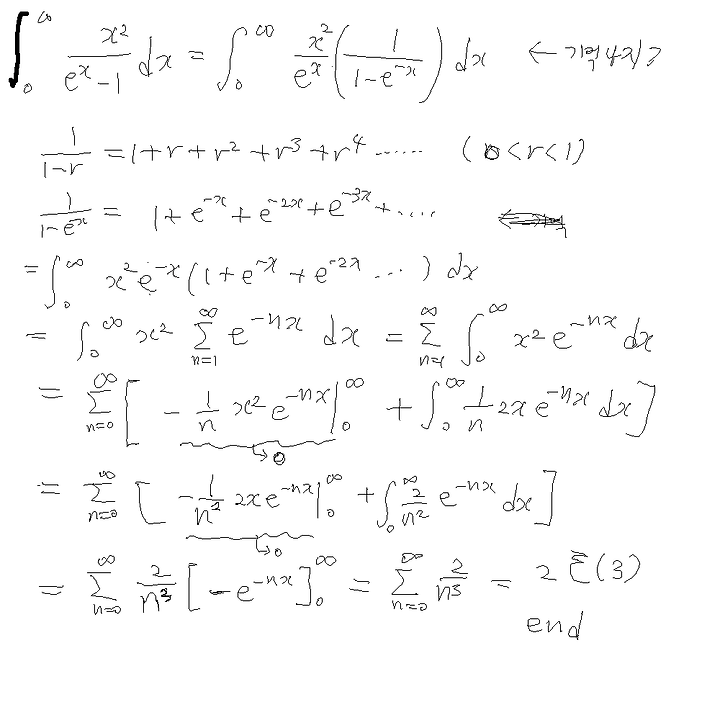 ∫₀^∞ x²/(eˣ-1) dx = ∫₀^∞ x²/eˣ (1/(1-e⁻ˣ)) dx ←
1/(1-r) = 1+r+r²+r³+r⁴ ...... (0<r<1)
1/(1-e⁻ˣ) = 1+e⁻ˣ+e⁻²ˣ+e⁻³ˣ+.....
= ∫₀^∞ x²e⁻ˣ(1+e⁻ˣ+e⁻²ˣ ...) dx
= ∫₀^∞ x² Σ_{n=1}^∞ e^{-nx} dx = Σ_{n=1}^∞ ∫₀^∞ x² e^{-nx} dx
= Σ_{n=0}^∞ [ -1/n x² e^{-nx} |₀^∞ + ∫₀^∞ 1/n 2x e^{-nx} dx ]
↳0
= Σ_{n=0}^∞ [ -1/n² 2x e^{-nx} |₀^∞ + ∫₀^∞ 2/n² e^{-nx} dx ]
↳0
= Σ_{n=0}^∞ 2/n³ [ -e^{-nx} ]₀^∞ = Σ_{n=0}^∞ 2/n³ = 2ξ(3)
end